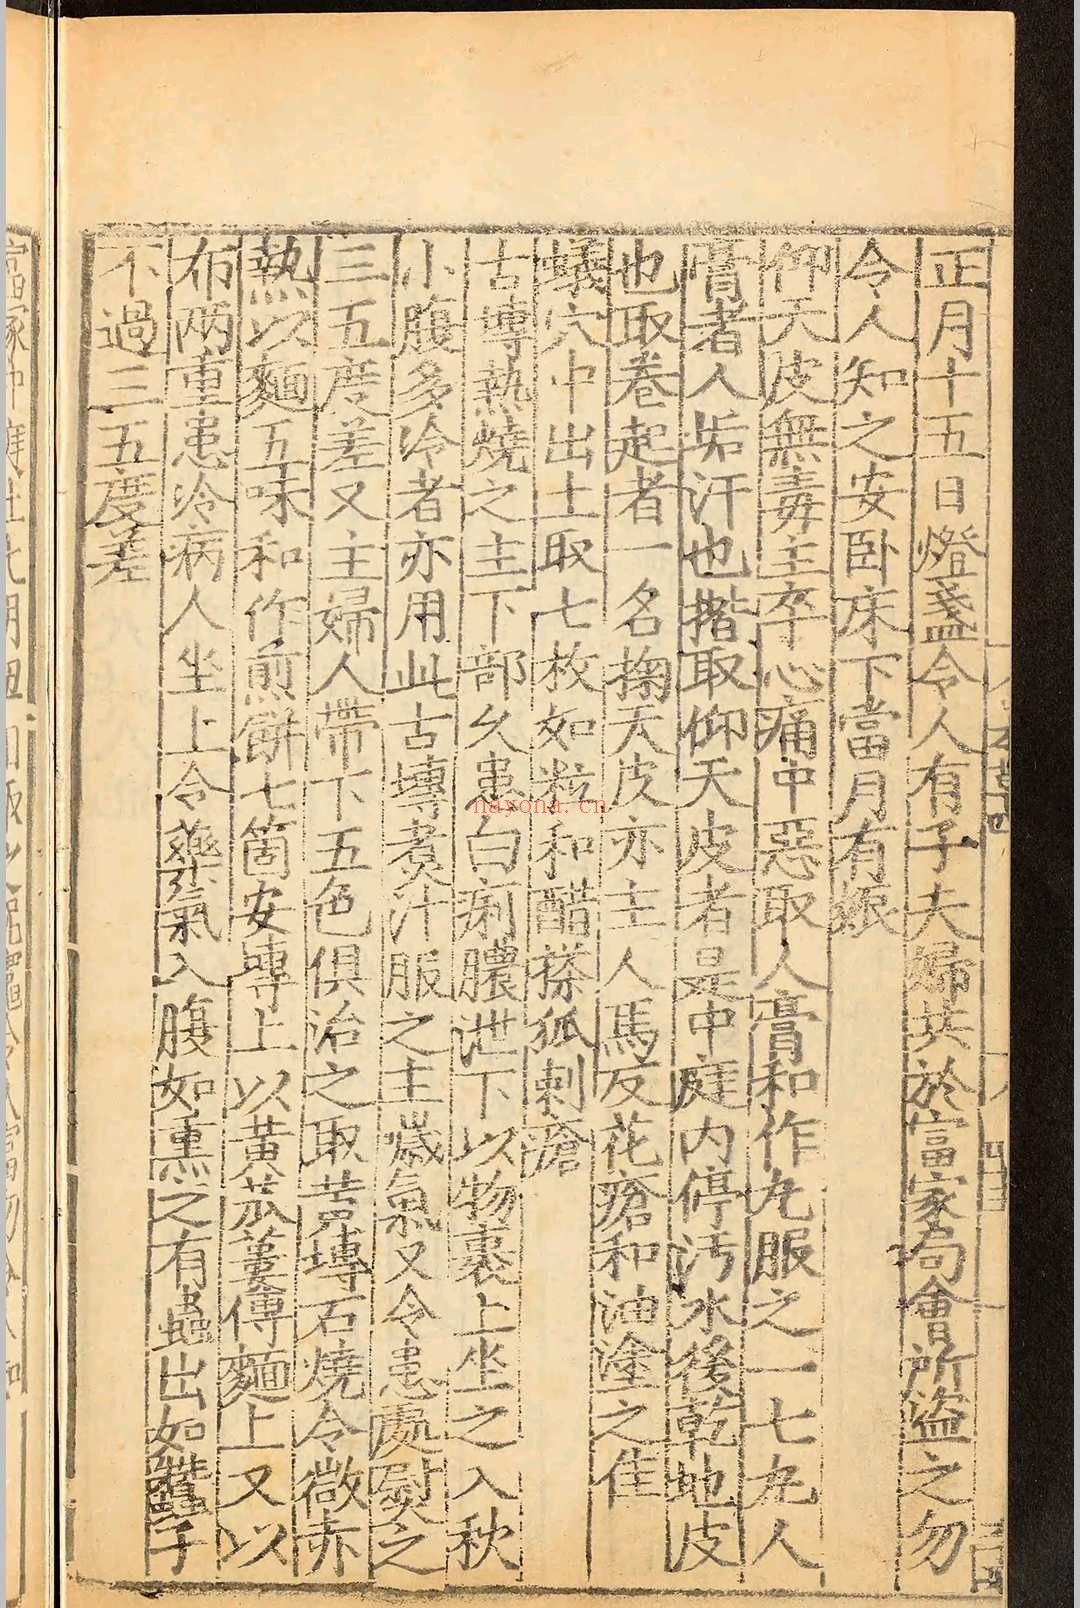 正月十五日燈盞令人有子夫婦共於富家局會所盜之勿
令人知之安卧床下當月有娠
仰天皮無毒主卒心痛中惡取人膏和作丸服之一七丸人
膏者人垢汗也揩取仰天皮者是中庭內停污水後乾地皮
也取卷起者一名掬天皮亦主人馬反花瘡和油塗之佳
蟻穴中出土取七枚如粒和醋搽狐刺瘡
古塼熱燒之主下部久患白痢膿泄下以物裹上坐之入秋
小腹多冷者亦用此古塼煮汁服之主噦氣又令患處熨之
三五度差又主婦人帶下五色俱治之取黃塼石燒令微赤
熱以麵五味和作煎餅七箇安塼上以黃苽蔞傅麵上又以
布兩重患冷病人坐上令藥氣入腹如熏之有蟲出如蠶子
不過三五度差
nayona.cn